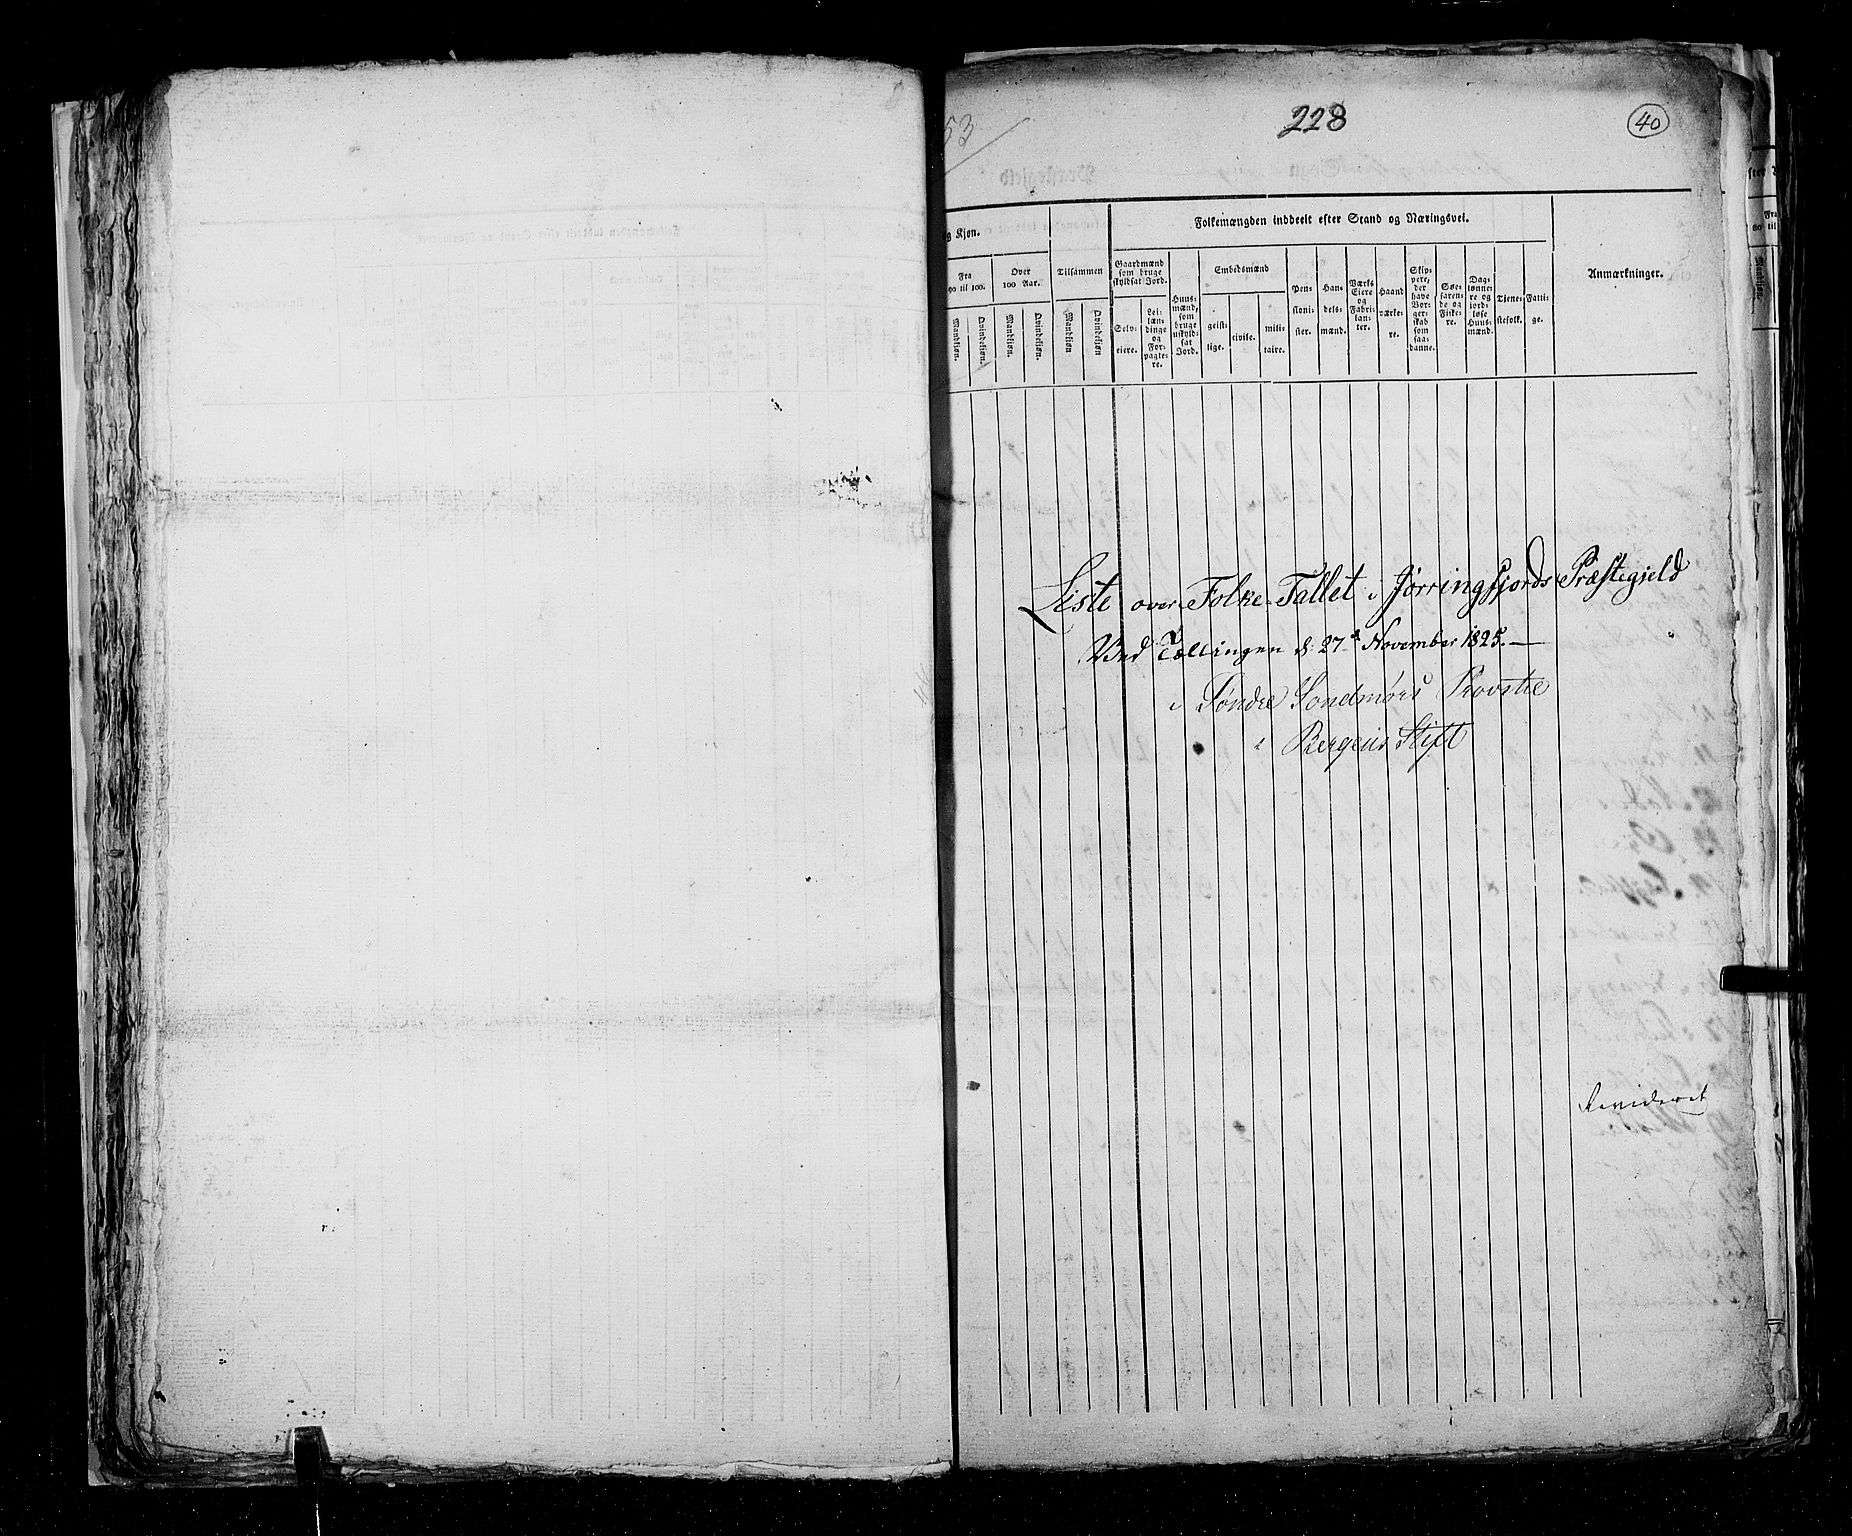 53
228
40
Folkemængden inddeelt efter Stand og Næringsvei.
g Kjøn.
Fra 90 til 100.
Over 100 Aar.
Tilsammen
Gaardmænd som bruge skyldsat Jord.
Huusmænd, som bruge uskyldsat Jord.
Embedsmænd
Pensionister.
Handelsmænd.
Værks Eiere og Fabrikanter.
Haandværkere.
Skippere, der have Borgerskab som saadanne.
Søefarende og Fiskere.
Daglønnere og jordløse Huusmænd.
Tjenestefolk.
Fattige.
Anmærkninger.
Mandkjøn.
Qvindekjøn.
Mandkjøn.
Qvindekjøn.
Mandkjøn
Qvindekjøn
Selveiere.
Leilændinge og Forpagtere.
geistlige.
civile.
militaire.
Liste over Folke-Tallet i Jørringfjords Præstegjeld
Ved Tællingen d. 27d November 1825.
i Søndre Søndmørs Provstie
i Bergens Stift
Revideret